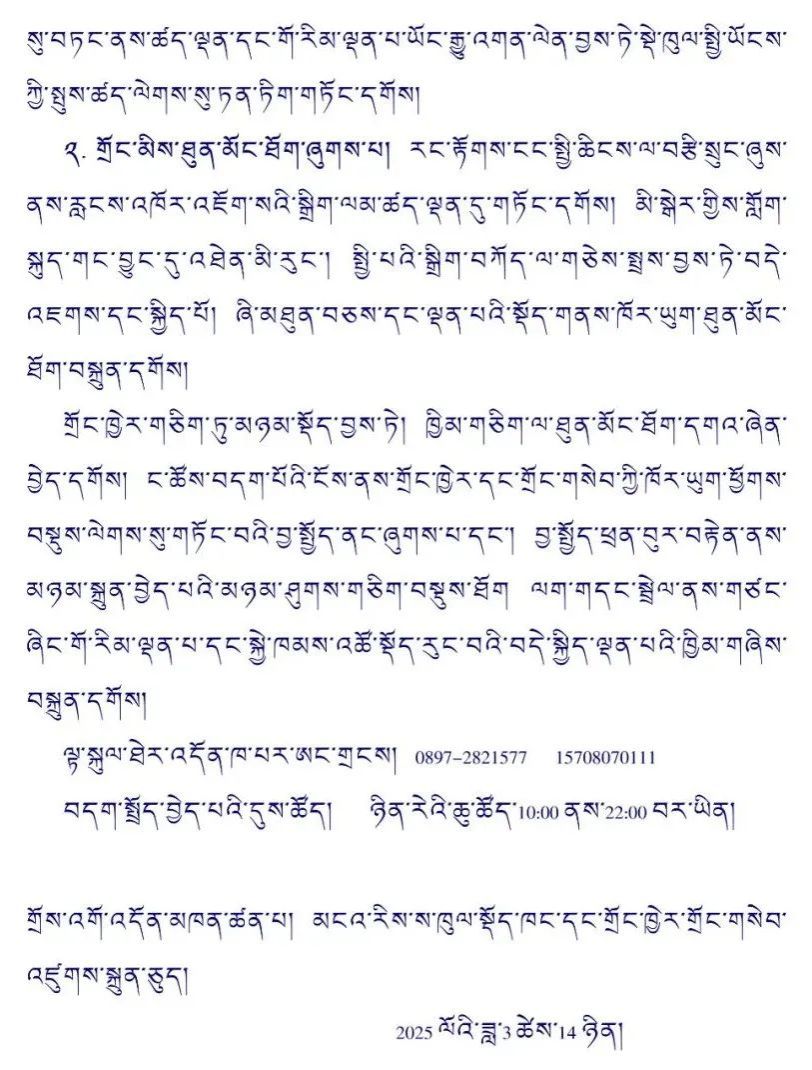 སུ་བཏང་ནས་ཚད་ལྡན་དང་གོ་རིམ་ལྡན་པ་ཡོང་རྒྱུ་འགན་ལེན་བྱས་ཏེ་སྡེ་ཁུལ་སྤྱི་ཡོངས་
ཀྱི་སྤུས་ཚད་ལེགས་སུ་ཏན་ཏིག་གཏོང་དགོས།
༢. གྲོང་མིས་ཐུན་མོང་ཐོག་ཞུགས་པ། རང་རྟོགས་ངང་སྤྱི་ཆིངས་ལ་བརྩི་སྲུང་ཞུས་
ནས་རླངས་འཁོར་འཇོག་སའི་སྒྲིག་ལམ་ཚད་ལྡན་དུ་གཏོང་དགོས། མི་སྒེར་གྱིས་གློག་
སྐུད་གང་བྱུང་དུ་འཐེན་མི་རུང་། སྤྱི་པའི་སྒྲིག་བཀོད་ལ་གཅེས་སྤྲས་བྱས་ཏེ་བདེ་
འཇགས་དང་སྐྱིད་པོ། ཞི་མཐུན་བཅས་དང་ལྡན་པའི་སྡོད་གནས་ཁོར་ཡུག་ཐུན་མོང་
ཐོག་བསྐྲུན་དགོས།
གྲོང་ཁྱེར་གཅིག་ཏུ་མཉམ་སྡོད་བྱས་ཏེ། ཁྱིམ་གཅིག་ལ་ཐུན་མོང་ཐོག་དགའ་ཞེན་
བྱེད་དགོས། ང་ཚོས་བདག་པོའི་ངོས་ནས་གྲོང་ཁྱེར་དང་གྲོང་གསེབ་ཀྱི་ཁོར་ཡུག་ཕྱོགས་
བསྡུས་ལེགས་སུ་གཏོང་བའི་བྱ་སྤྱོད་ནང་ཞུགས་པ་དང་། བྱ་སྤྱོད་ཕྲན་བུར་བརྟེན་ནས་
མཉམ་སྐྲུན་བྱེད་པའི་མཉམ་ཤུགས་གཅིག་བསྡུས་ཐོག ལག་གདང་སྦྲེལ་ནས་གཙང་
ཞིང་གོ་རིམ་ལྡན་པ་དང་སྐྱེ་ཁམས་འཚོ་སྡོད་རུང་བའི་བདེ་སྐྱིད་ལྡན་པའི་ཁྱིམ་གཞིས་
བསྐྲུན་དགོས།
ལྟ་སྐུལ་ཐེར་འདོན་ཁ་པར་ཨང་གྲངས། 0897-2821577 15708070111
བདག་སྤྲོད་བྱེད་པའི་དུས་ཚོད། ཉིན་རེའི་ཆུ་ཚོད་10:00 ནས་22:00 བར་ཡིན།
གྲོས་འགོ་འདོན་མཁན་ཚན་པ། མངའ་རིས་ས་ཁུལ་སྡོད་ཁང་དང་གྲོང་ཁྱེར་གྲོང་གསེབ་
འཛུགས་སྐྲུན་ཅུད།
2025 ལོའི་ཟླ་3 ཚེས་14 ཉིན།